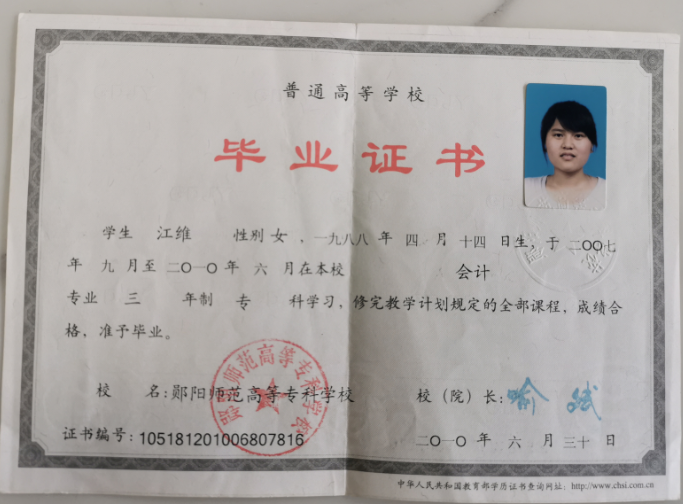 普通高等学校
毕业证书
学生 江维 性别 女 ,一九八八 年 四 月 十四 日生, 于 二〇〇七
年 九 月至 二〇一〇 年 六 月在本校 会计
专业 三 年制 专 科学习, 修完教学计划规定的全部课程, 成绩合
格, 准予毕业。
校 名: 郧阳师范高等专科学校
郧阳师范高等专科学校
校(院)长: 喻斌
证书编号: 105181201006807816
二〇一〇 年 六 月 三十 日
中华人民共和国教育部学历证书查询网址: http://www.chsi.com.cn